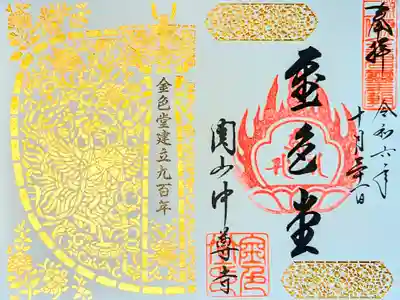 奉拝
令和六年
十月日
金色堂
関山中尊寺
金色堂建立九百年